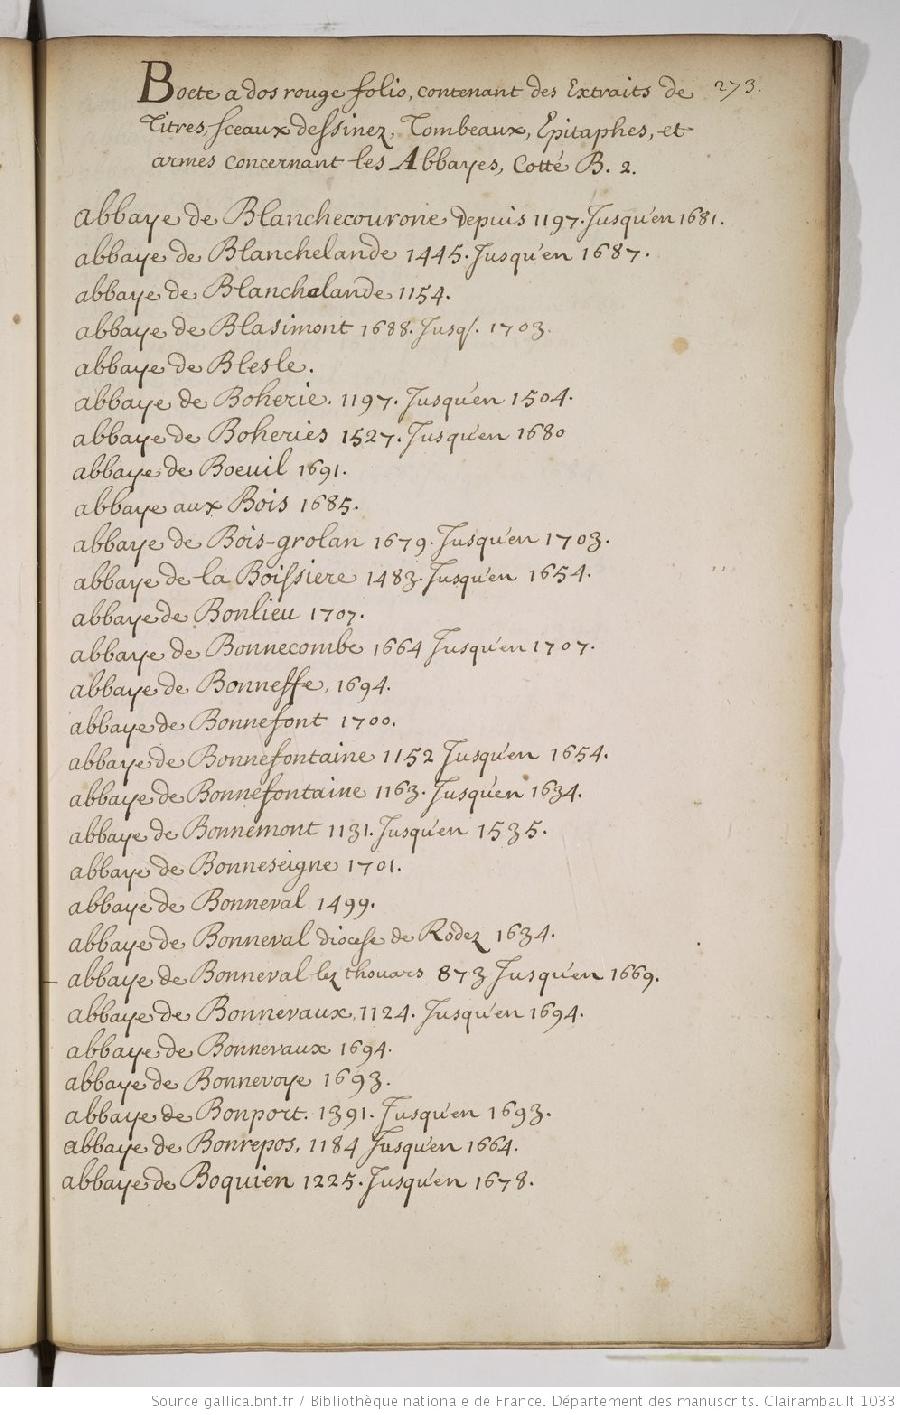 Boete a dos rouge folio, contenant des Extraits de 273.
Titres, sceaux dessinez, Tombeaux, Epitaphes, et
armes concernant les Abbayes, Cotté B. 2.
abbaye de Blanchecourone depuis 1197. Jusqu'en 1681.
abbaye de Blanchelande 1445. Jusqu'en 1687.
abbaye de Blanchelande 1154.
abbaye de Blasimont 1688. Jusq/. 1703.
abbaye de Blesle.
abbaye de Boherie. 1197. Jusqu'en 1504.
abbaye de Boheries 1527. Jusqu'en 1680
abbaye de Boeuil 1691.
abbaye aux Bois 1685.
abbaye de Bois-grolan 1679. Jusqu'en 1703.
abbaye de la Boissiere 1483. Jusqu'en 1654.
abbaye de Bonlieu 1707.
abbaye de Bonnecombe 1664 Jusqu'en 1707.
abbaye de Bonneffe, 1694.
abbaye de Bonnefont 1700.
abbaye de Bonnefontaine 1152 Jusqu'en 1654.
abbaye de Bonnefontaine 1163. Jusqu'en 1634.
abbaye de Bonnemont 1131. Jusqu'en 1535.
abbaye de Bonneseigne 1701.
abbaye de Bonneval 1499.
abbaye de Bonneval diocese de Rodez 1634.
abbaye de Bonneval lez thouars 873 Jusqu'en 1669.
abbaye de Bonnevaux, 1124. Jusqu'en 1694.
abbaye de Bonnevaux 1694.
abbaye de Bonnevoye 1693.
abbaye de Bonport. 1391. Jusqu'en 1693.
abbaye de Bonrepos, 1184 Jusqu'en 1664.
abbaye de Boquien 1225. Jusqu'en 1678.
Source gallica.bnf.fr / Bibliothèque nationale de France. Département des manuscrits. Clairambault 1033